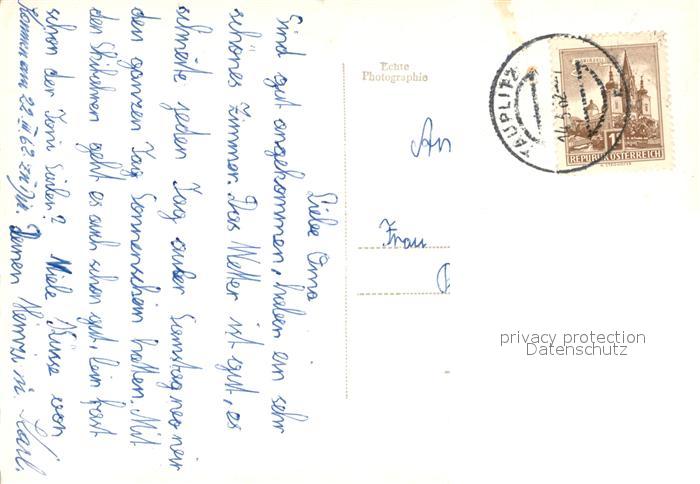 Liebe Oma
Sind gut angekommen, haben ein sehr
schönes Zimmer. Das Wetter ist gut, es
schneite jeden Tag außer Samstag wo wir
den ganzen Tag Sonnenschein hatten. Mit
den Skifahren geht es auch schon gut, bin fast
schon der Toni Sailer? Viele Küsse von
kommen am 22. III 62 zu Dir. Deinen Heinzi u. Karl.
Echte
Photographie
An
Frau
TAUPLITZ
1S
REPUBLIK ÖSTERREICH
privacy protection
Datenschutz